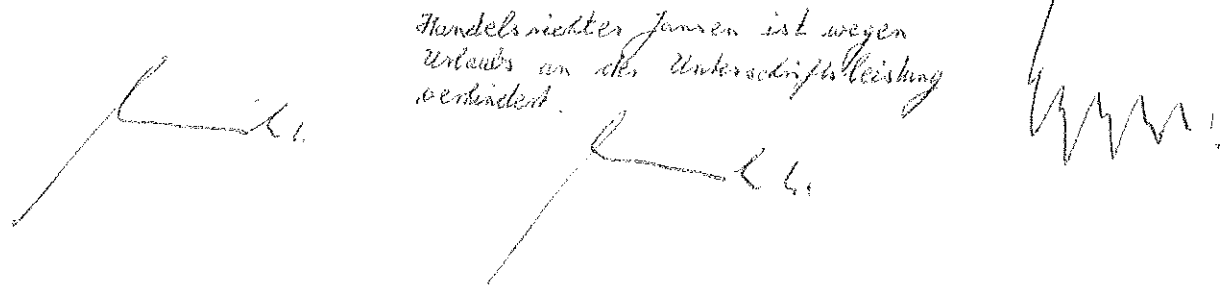 Handelsrichter Jansen ist wegen
Urlaubs an der Unterschriftsleistung
verhindert.